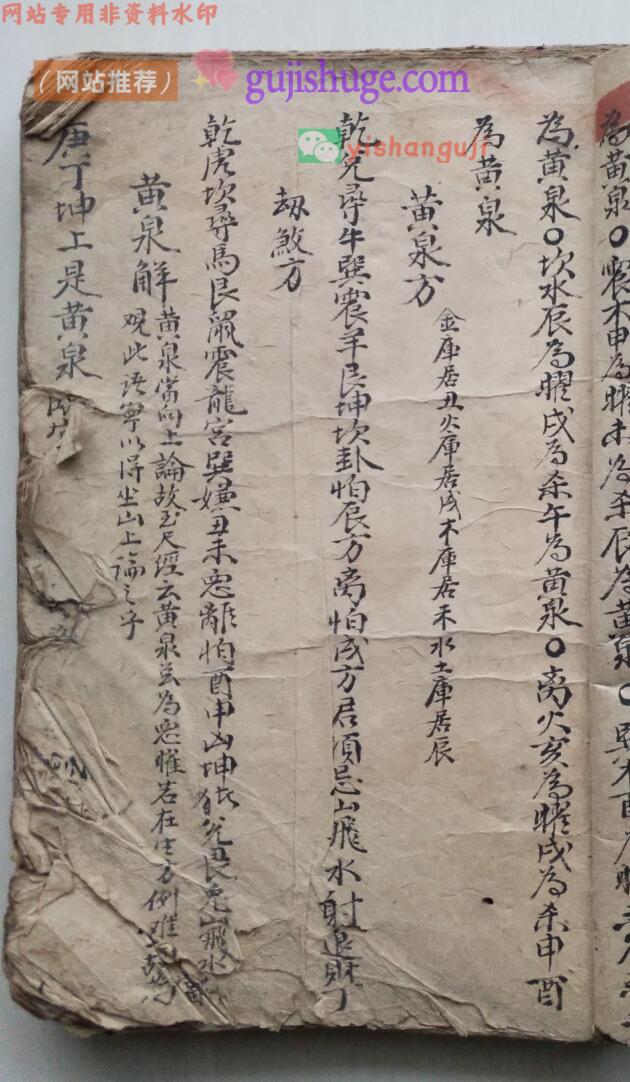 网站专用非资料水印
（网站推荐）
gujishuge.com
yishanguji
為黄泉〇震木申為曜未為杀辰為黄泉〇巽木酉為曜
為黄泉〇坎水辰為曜戌為杀午為黄泉〇离火亥為曜戌為杀申酉
為黄泉
黄泉方
金庫居丑火庫居戌木庫居未水土庫居辰
乾兌尋牛巽震羊艮坤坎卦怕辰方离怕戌方君須忌山飛水射退財丁
刼煞方
乾虎坎尋馬艮鼠震龍宮巽嫌丑未忌離怕酉申山坤兌艮兔山飛水
黄泉解
黄泉當向上論故玉尺經云黄泉並為忌惟若在生方例难
观此语寧以得坐山上論之乎
庚丁坤上是黄泉